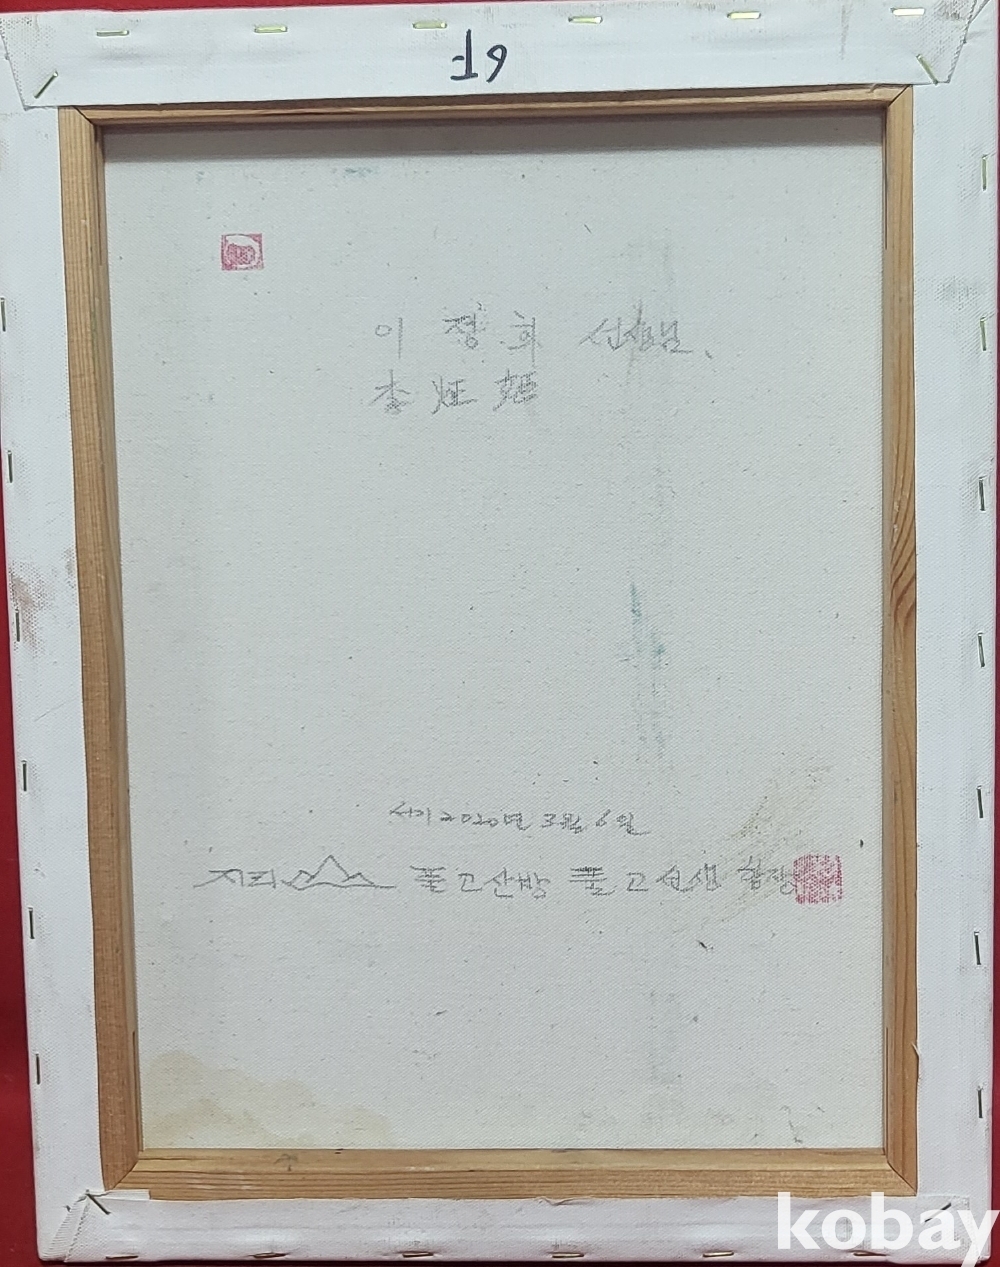 6F
이 정 희 선생님、
李 姃 姬
서기 2020년 3월 6일
지리산 풀고산방 풀고선생 합장
kobay